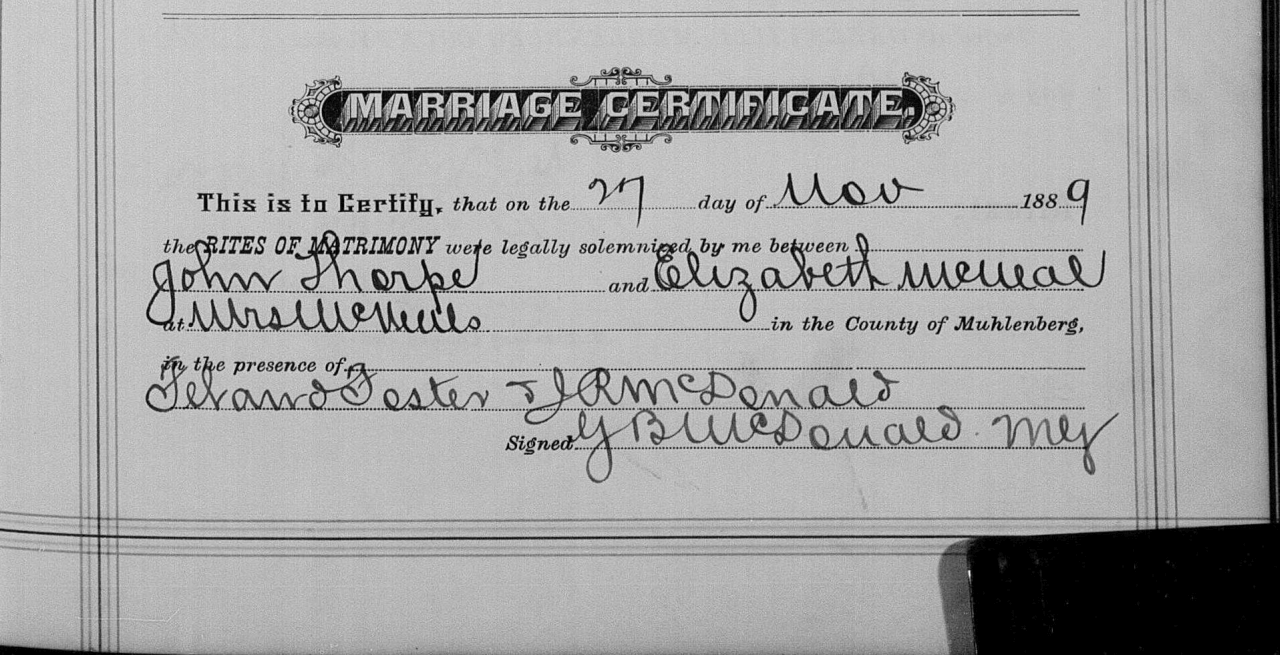 MARRIAGE CERTIFICATE.
This is to Certify, that on the 27 day of Nov 1889
the RITES OF MATRIMONY were legally solemnized by me between
John Thorpe and Elizabeth McNeal
at Mrs McNeils in the County of Muhlenberg,
in the presence of
Foster & J R McDonald
Signed Y B McDonald